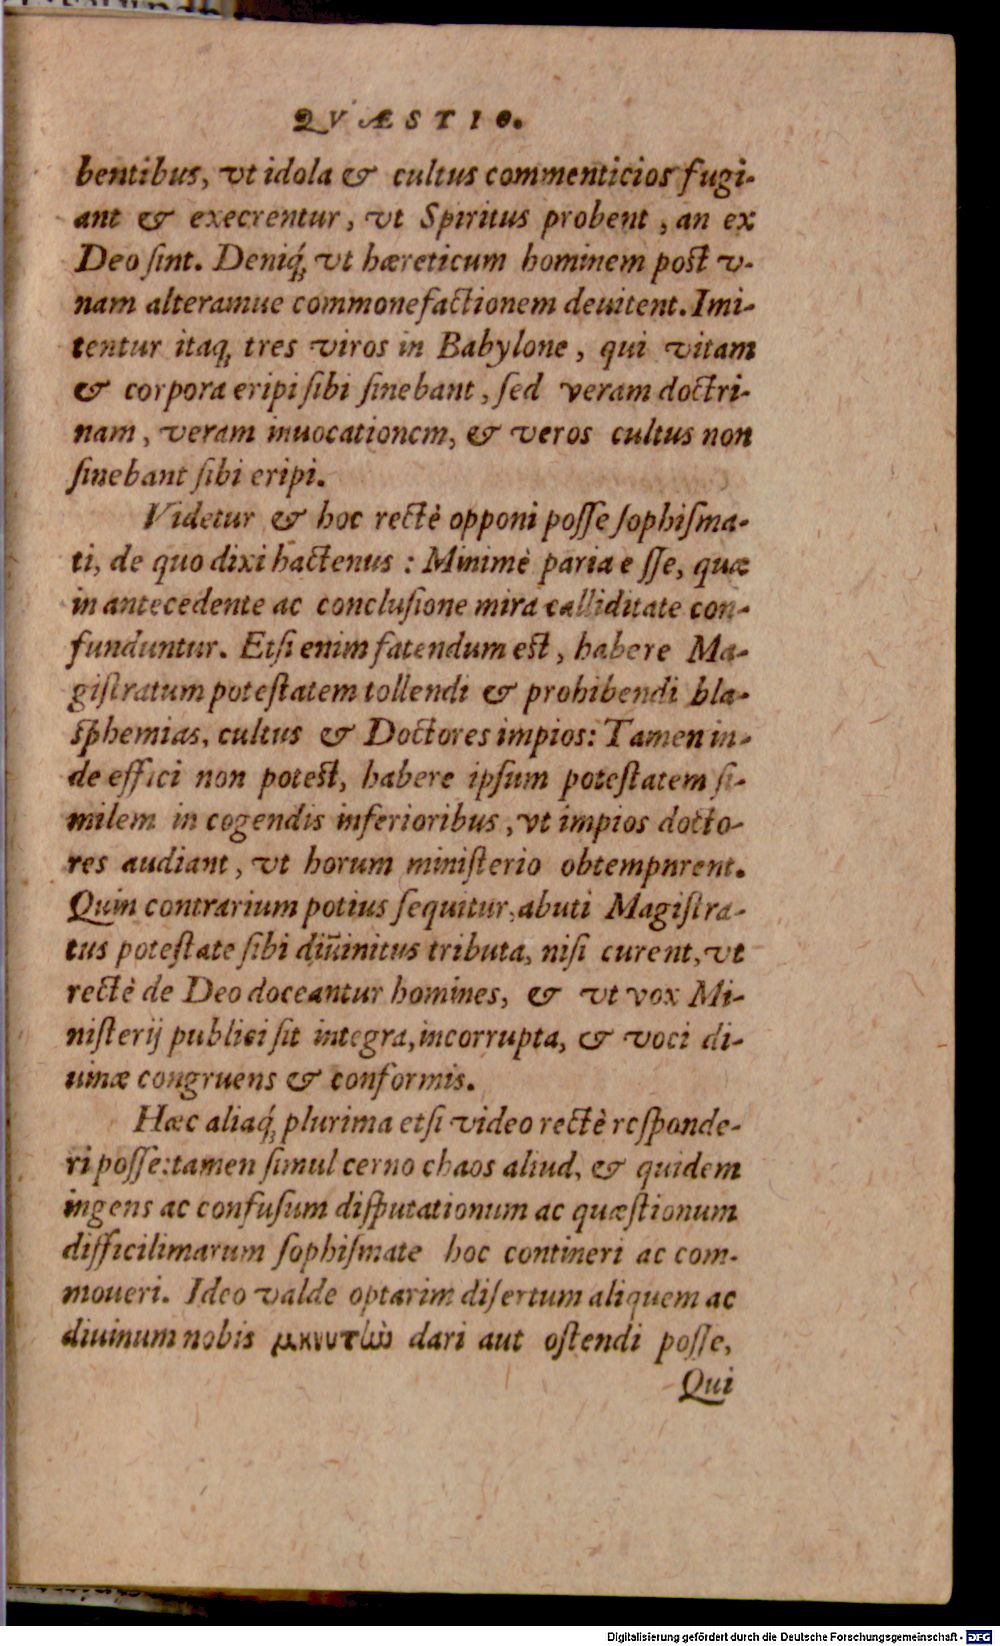 QVÆSTIO.
bentibus, vt idola & cultus commenticios fugi-
ant & execrentur, vt Spiritus probent, an ex
Deo ſint. Deniq́; vt hæreticum hominem poſt v-
nam alteramue commonefactionem deuitent. Imi-
tentur itaq; tres viros in Babylone, qui vitam
& corpora eripi ſibi ſinebant, ſed veram doctri-
nam, veram inuocationem, & veros cultus non
ſinebant ſibi eripi.
Videtur & hoc rectè opponi poſſe ſophiſma-
ti, de quo dixi hactenus: Minimè paria eſſe, quæ
in antecedente ac concluſione mira calliditate con-
funduntur. Etſi enim fatendum eſt, habere Ma-
giſtratum poteſtatem tollendi & prohibendi bla-
ſphemias, cultus & Doctores impios: Tamen in-
de effici non poteſt, habere ipſum poteſtatem ſi-
milem in cogendis inferioribus, vt impios docto-
res audiant, vt horum miniſterio obtempnrent.
Quin contrarium potius ſequitur, abuti Magiſtra-
tus poteſtate ſibi diuinitus tributa, niſi curent, vt
rectè de Deo doceantur homines, & vt vox Mi-
niſterij publici ſit integra, incorrupta, & voci di-
uinæ congruens & conformis.
Hæc aliaq́; plurima etſi video rectè reſponde-
ri poſſe: tamen ſimul cerno chaos aliud, & quidem
ingens ac confuſum diſputationum ac quæſtionum
difficilimarum ſophiſmate hoc contineri ac com-
moueri. Ideo valde optarim diſertum aliquem ac
diuinum nobis dari aut oſtendi poſſe,
Qui
Digitalisierung gefördert durch die Deutsche Forschungsgemeinschaft - DFG